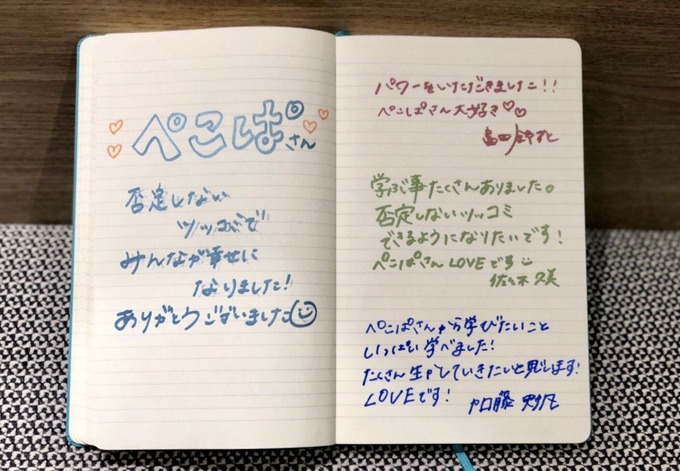 ぺこぱさん
否定しない
ツッコミで
みんなが幸せに
なりました！
ありがとうございました
パワーをいただきました！！
ぺこぱさん大好き
学ぶ事たくさんありました。
否定しないツッコミ
できるようになりたいです！
ぺこぱさんLOVEです
佐々木久美
ぺこぱさんから学びたいこと
いっぱい学べました！
たくさん生かしていきたいと思います！
LOVEです！ 加藤史帆